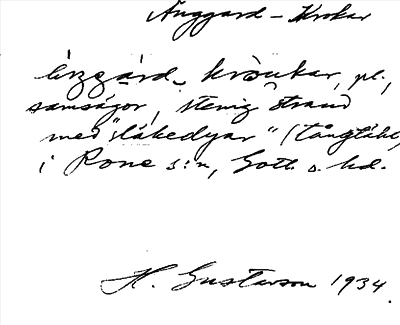 Änggard - Krokar
ęŋgård krọukar, pl.,
samsägor, stenig strand
med "släkedyar" (tångtäkt)
i Rone s:n, Gotl. s. hd.
H. Gustavson 1934.